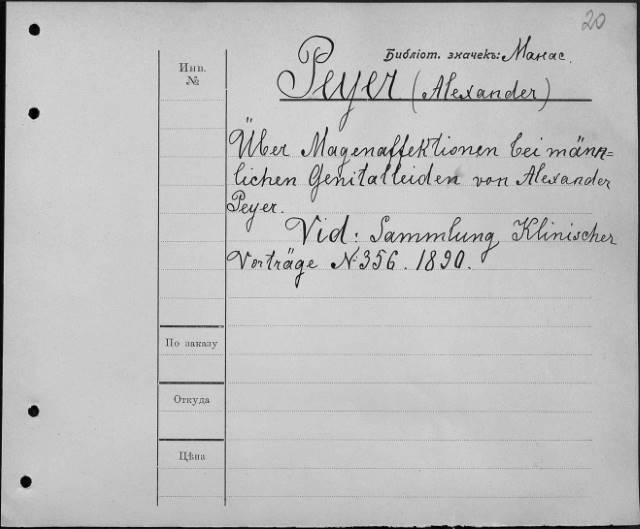 20
Библiот. значекъ: Манас.
Инв.
№
Peyer (Alexander)
Über Magenaffektionen bei männ=
lichen Genitalleiden von Alexander
Peyer.
Vid: Sammlung Klinischer
Vorträge №356. 1890.
По заказу
Откуда
Цѣна